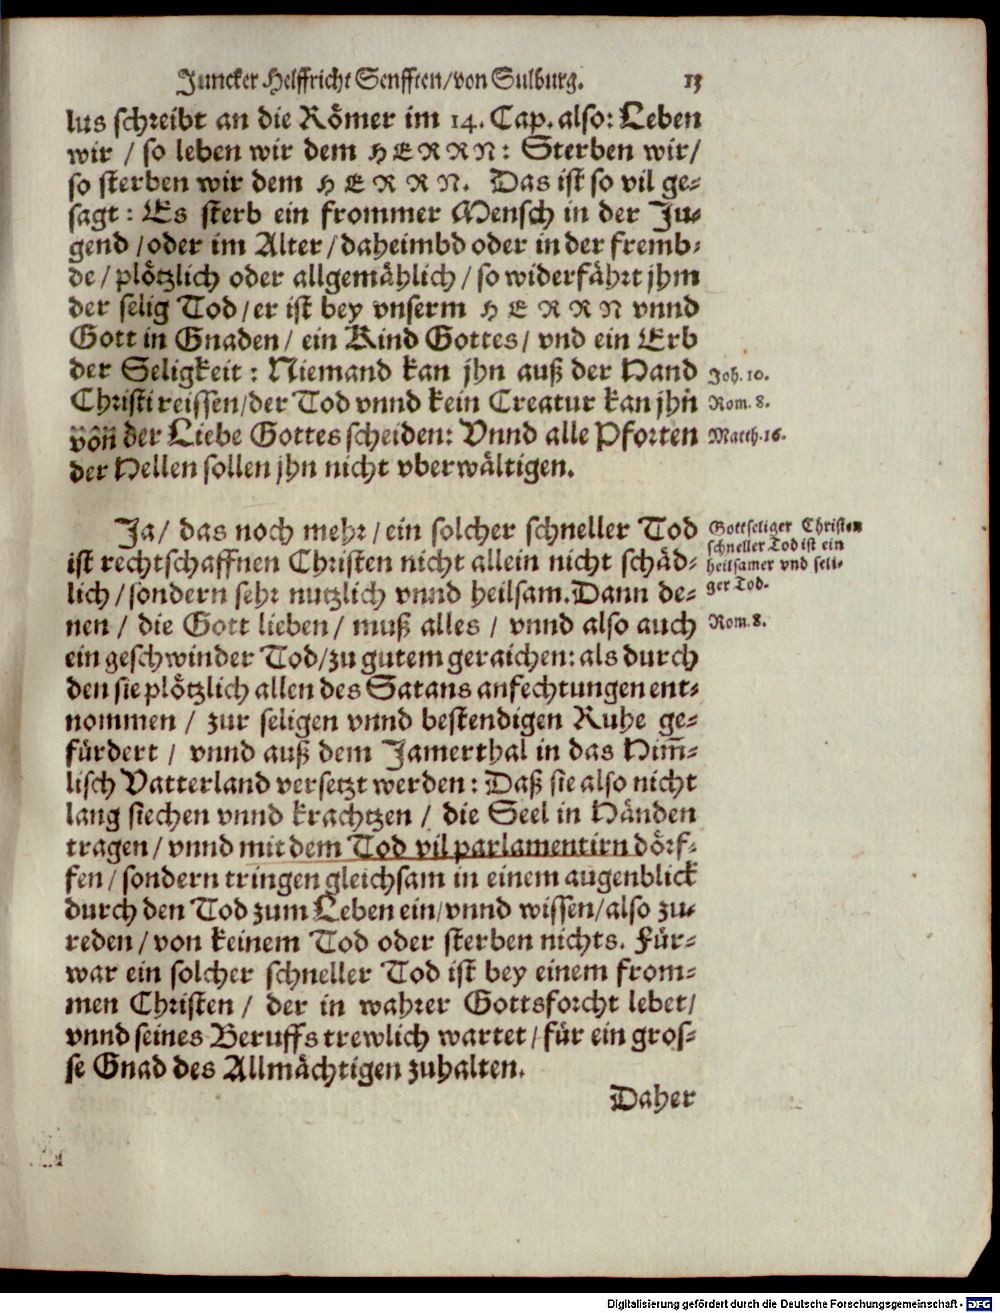 Juncker Helffricht Senfften/von Sulburg. 13
lus schreibt an die Römer im 14. Cap. also: Leben
wir / so leben wir dem HERRN: Sterben wir/
so sterben wir dem HERRN. Das ist so vil ge-
sagt: Es sterb ein frommer Mensch in der Ju-
gend /oder im Alter /daheimbd oder in der fremb-
de / plötzlich oder allgemählich / so widerfährt jhm
der selig Tod/er ist bey vnserm HERRN vnnd
Gott in Gnaden/ ein Kind Gottes/ vnd ein Erb
der Seligkeit: Niemand kan jhn auß der Hand
Christi reissen/der Tod vnnd kein Creatur kan jhn
von der Liebe Gottes scheiden: Vnnd alle Pforten
der Hellen sollen jhn nicht vberwältigen.
Joh. 10.
Rom. 8.
Matth. 16.
Ja/ das noch mehr / ein solcher schneller Tod
ist rechtschaffnen Christen nicht allein nicht schäd-
lich /sondern sehr nutzlich vnnd heilsam. Dann de-
nen / die Gott lieben/ muß alles / vnnd also auch
ein geschwinder Tod/zu gutem geraichen: als durch
den sie plötzlich allen des Satans anfechtungen ent-
nommen / zur seligen vnnd bestendigen Ruhe ge-
fürdert / vnnd auß dem Jamerthal in das Him̄-
lisch Vatterland versetzt werden: Daß sie also nicht
lang siechen vnnd krachtzen / die Seel in Händen
tragen / vnnd mit dem Tod vil parlamentirn dörf-
fen / sondern tringen gleichsam in einem augenblick
durch den Tod zum Leben ein/vnnd wissen/also zu-
reden / von keinem Tod oder sterben nichts. Für-
war ein solcher schneller Tod ist bey einem from-
men Christen / der in wahrer Gottsforcht lebet/
vnnd seines Beruffs trewlich wartet / für ein gros-
se Gnad des Allmächtigen zuhalten.
Gottseliger Christen
schneller Tod ist ein
heilsamer vnd seli-
ger Tod.
Rom. 8.
Daher
Digitalisierung gefördert durch die Deutsche Forschungsgemeinschaft - DFG